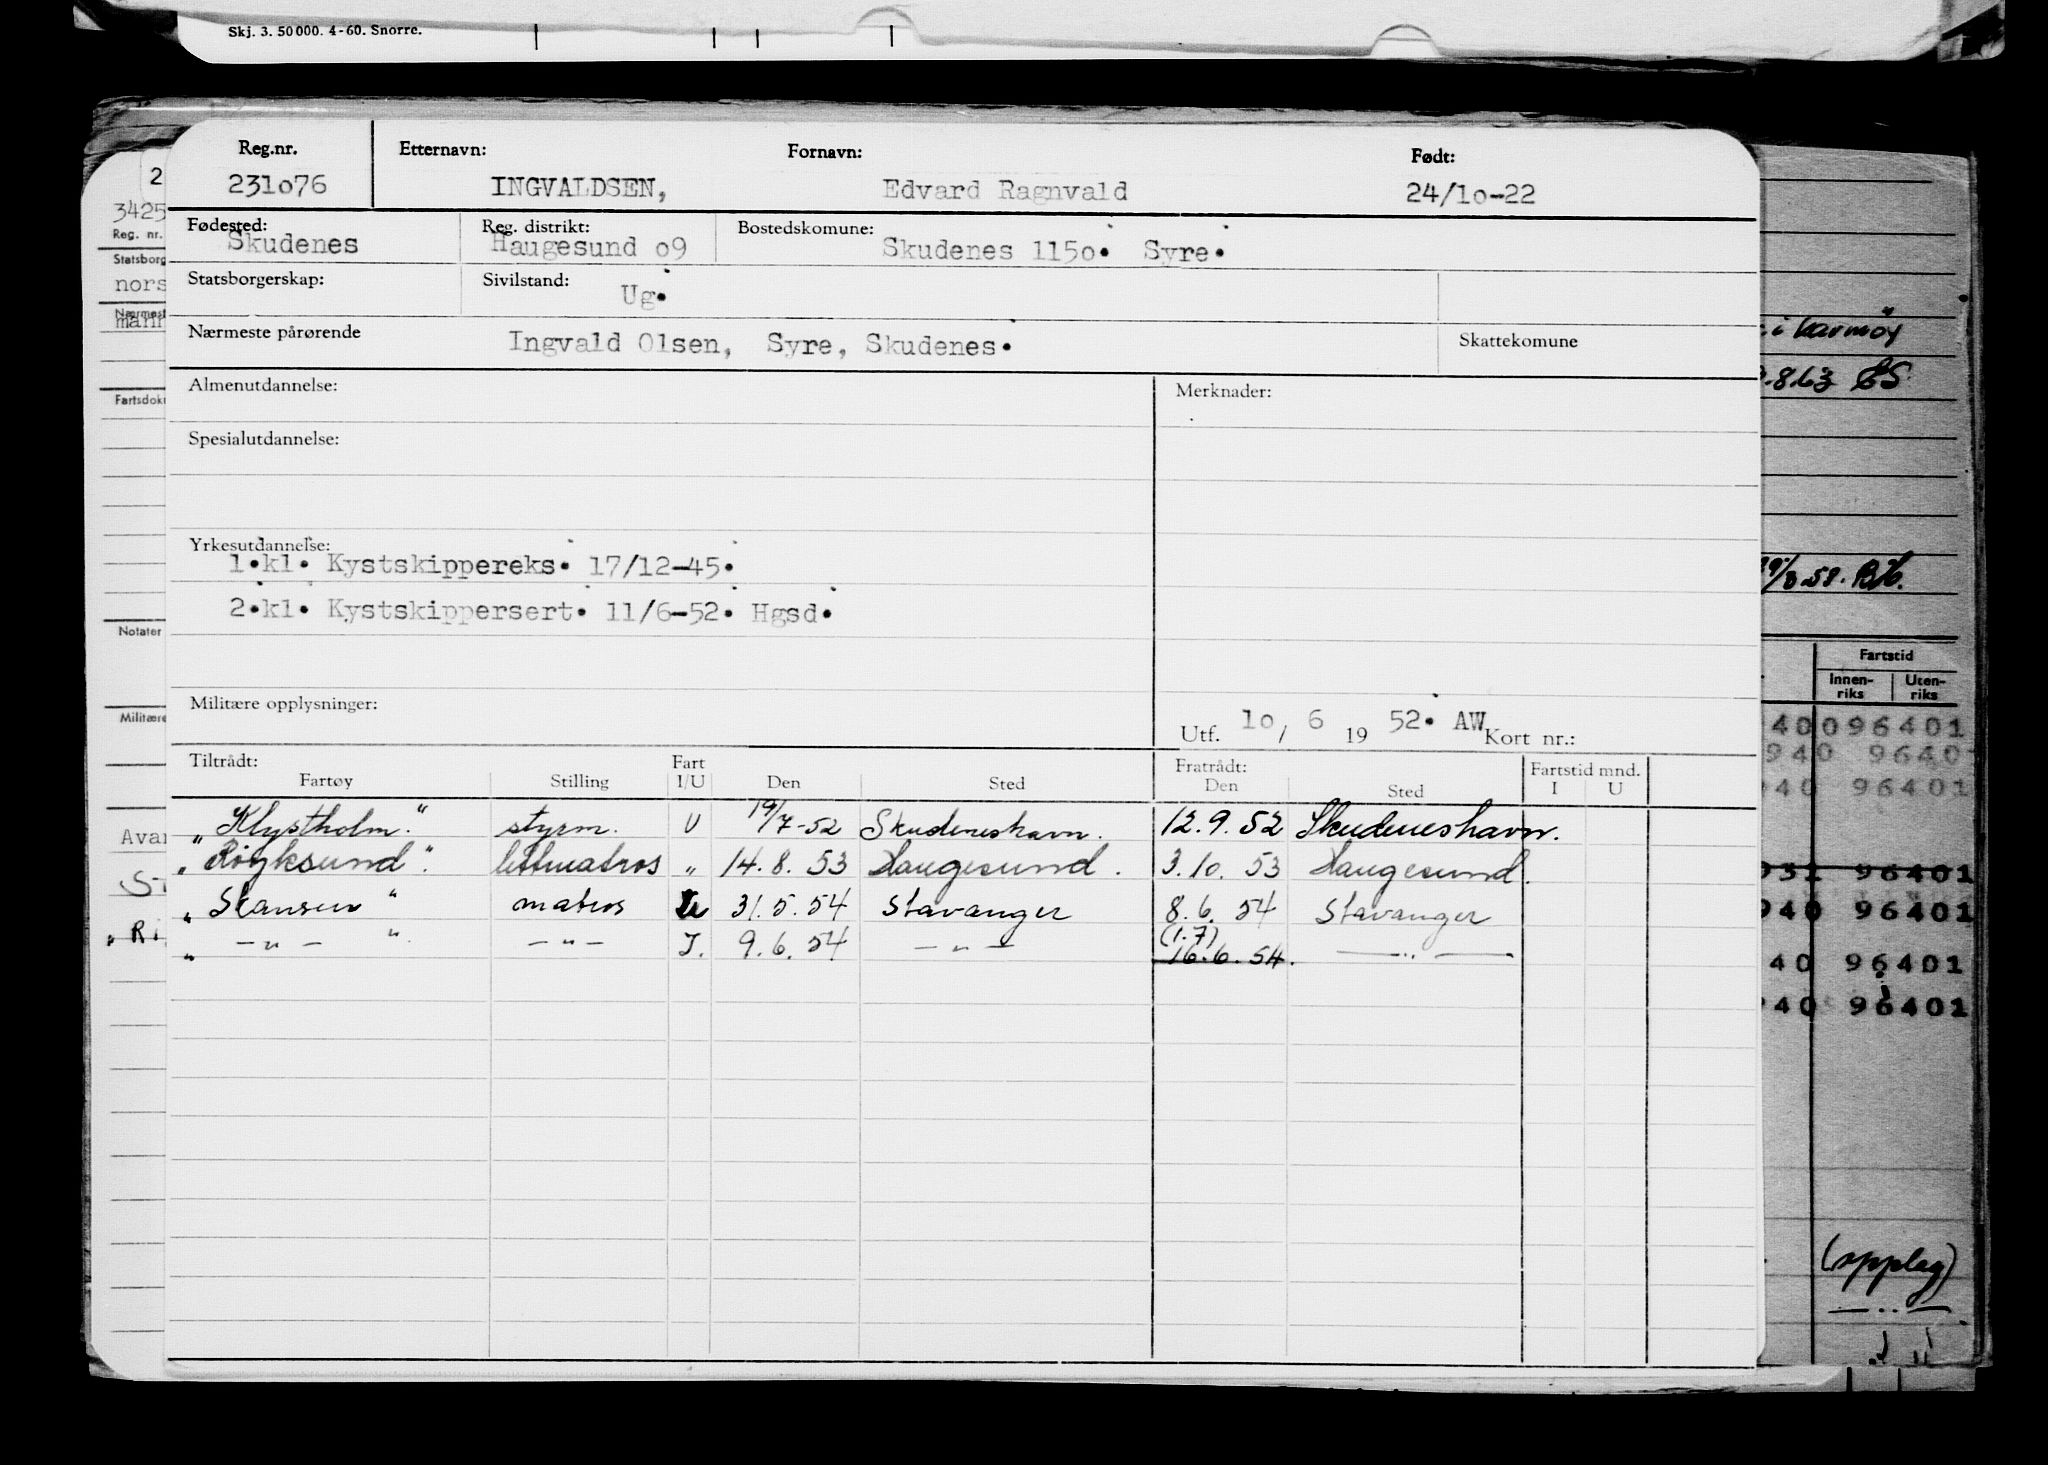 Skj. 3. 50 000. 4-60. Snorre.
Reg.nr. Etternavn: Fornavn: Født:
231o76 INGVALDSEN, Edvard Ragnvald 24/1o-22
Fødested: Reg. distrikt: Bostedskomune:
Skudenes Haugesund o9 Skudenes 115o. Syre.
Statsborgerskap: Sivilstand:
Ug.
Nærmeste pårørende Skattekomune
Ingvald Olsen, Syre, Skudenes.
Almenutdannelse: Merknader:
Spesialutdannelse:
Yrkesutdannelse:
1.kl. Kystskippereks. 17/12-45.
2.kl. Kystskippersert. 11/6-52. Hgsd.
Militære opplysninger:
Utf. 1o / 6 19 52. AW Kort nr.:
Tiltrådt: Fart Fratrådt: Fartstid mnd.
Fartøy Stilling I/U Den Sted Den Sted I U
"Klystholm." styrm. U 19/7-52 Skudeneshavn. 12.9.52 Skudeneshavn.
"Røyksund". lettmatros " 14.8.53 Haugesund. 3.10.53 Haugesund.
"Skansen" matros U 31.5.54 Stavanger 8.6.54 Stavanger
" -"- " -"- I. 9.6.54 -"- (1.7) 16.6.54. -"-
2
3425
Reg. nr.
Statsborg
nors
Nærmest
mann
Fartsdoku
Notater
Militære
Avan
St
" Ri
i Karmøy
.8.63 ES
58. BH.
Fartstid
Innen-riks Uten-riks
40096401
940 9640
40 96401
931 96401
940 96401
40 96401
940 96401
(opplag)